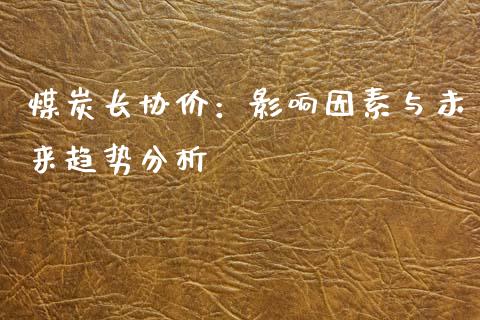 煤炭长协价：影响因素与未
来趋势分析